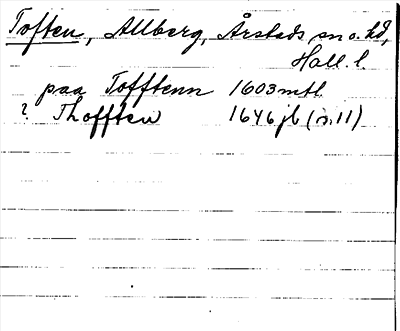 Toften, Allberg, Årstads sn o. hd,
Hall. l.
paa Tofftenn 1603 mtl
? Thofften 1646 jb (s. 11)